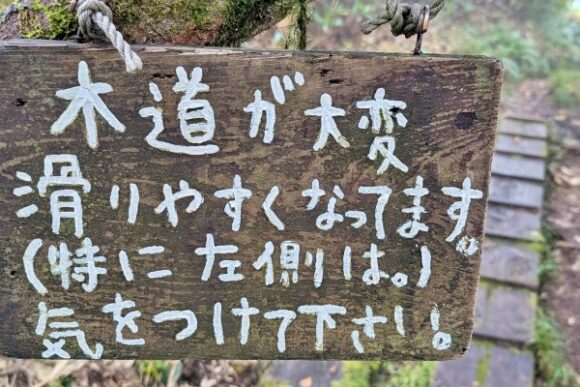 木道が大変
滑りやすくなってます。
(特に左側は。)
気をつけて下さい!